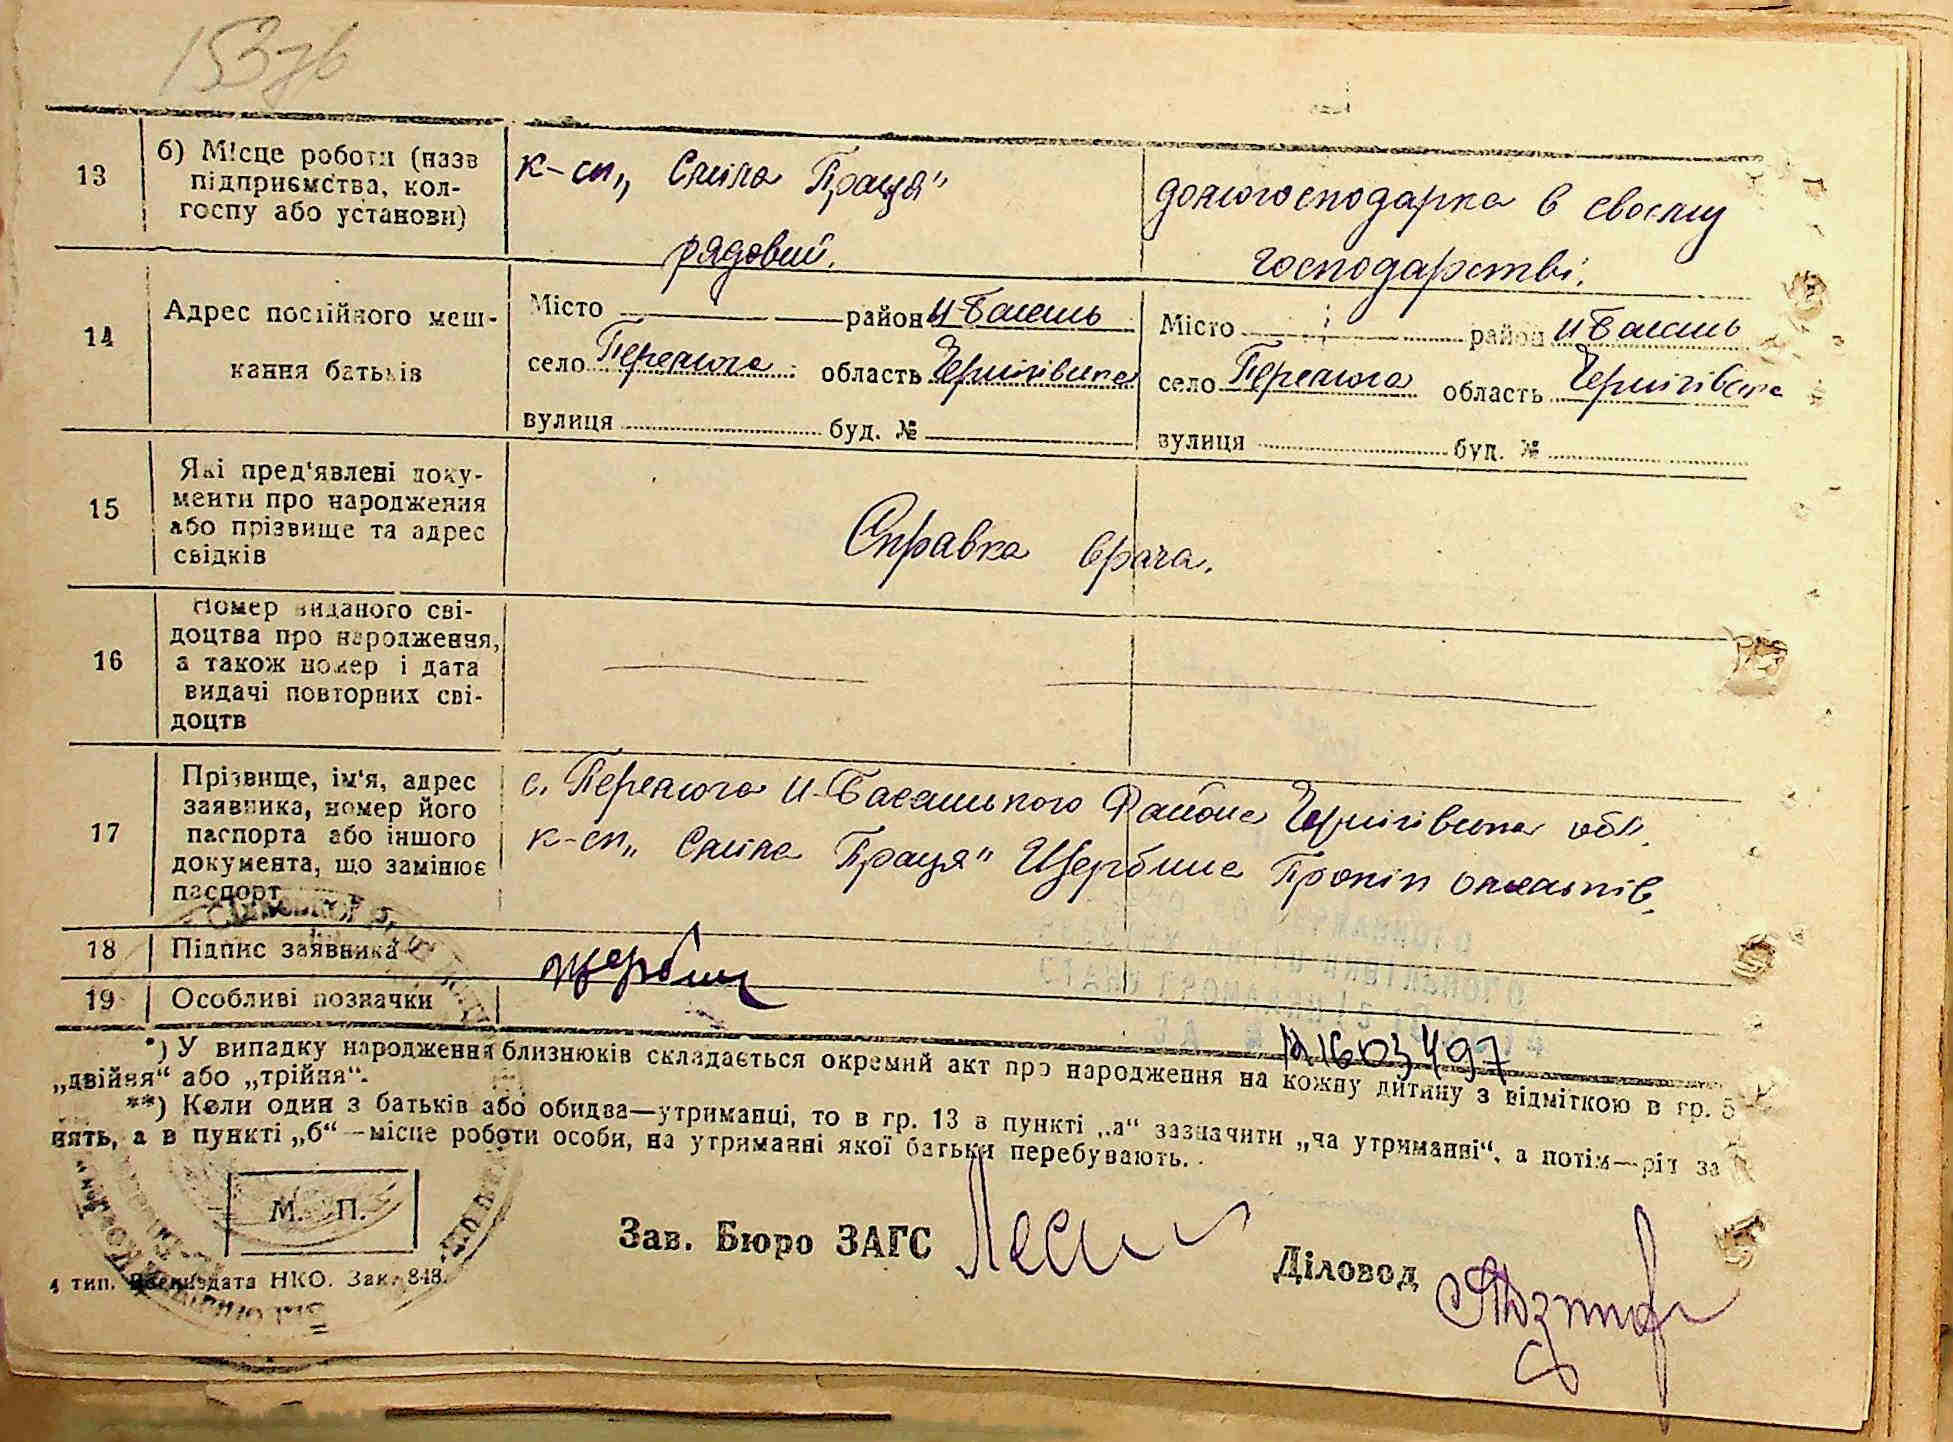 153зв
13
б) Місце роботи (назв
підприємства, кол-
госпу або установи)
к-сп „Сміла Праця"
рядовий.
домогосподарка в своєму
господарстві.
14
Адрес постійного меш-
кання батьків
Місто район Н-Басань
село Перемога область Чернігівська
вулиця буд. №
Місто район Н-Басань
село Перемога область Чернігівська
вулиця буд. №
15
Які пред'явлені доку-
менти про народження
або прізвище та адрес
свідків
Справка врача.
16
Номер виданого сві-
доцтва про народження,
а також номер і дата
видачі повторних сві-
доцтв
17
Прізвище, ім'я, адрес
заявника, номер його
паспорта або іншого
документа, що замінює
паспорт
с. Перемога Н-Басанського Району Чернігівська обл.
к-сп „Сміла Праця" Щербина Прокіп
18
Підпис заявника
Щербин
19
Особливі позначки
1603497
*) У випадку народження близнюків складається окремий акт про народження на кожну дитину з відміткою в гр. 5
„двійня" або „трійня".
**) Коли один з батьків або обидва—утриманці, то в гр. 13 в пункті „а" зазначити „на утриманні", а потім—рід за
нять, а в пункті „б"—місце роботи особи, на утриманні якої батьки перебувають.
М. П.
Зав. Бюро ЗАГС
Діловод
4 тип. Воениздата НКО. Зак. 848.